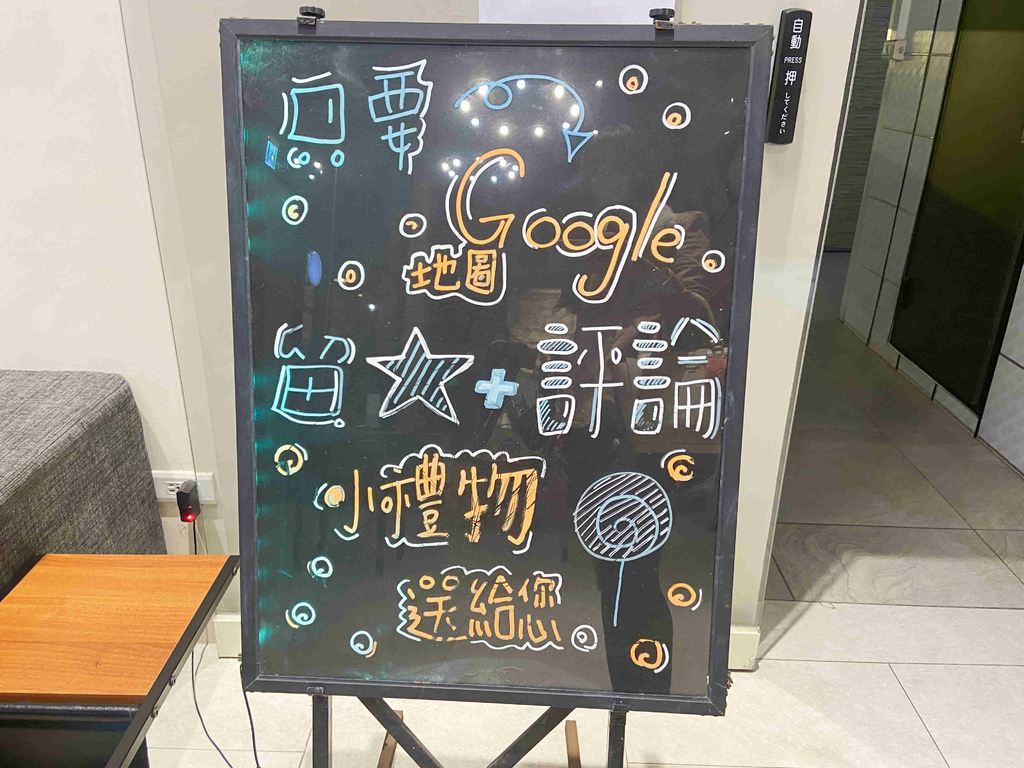 只要
Google
地圖
留☆+評論
小禮物
送給您
自動
PRESS
押
してください